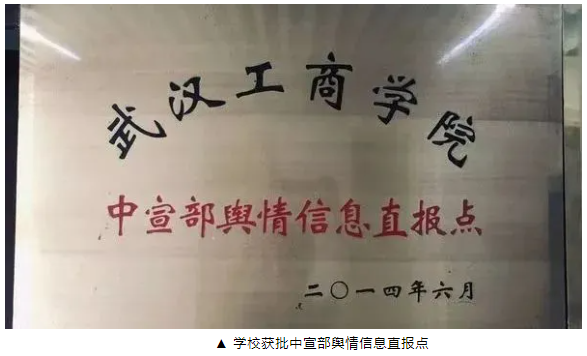 武汉工商学院
中宣部舆情信息直报点
二〇一四年六月
▲ 学校获批中宣部舆情信息直报点